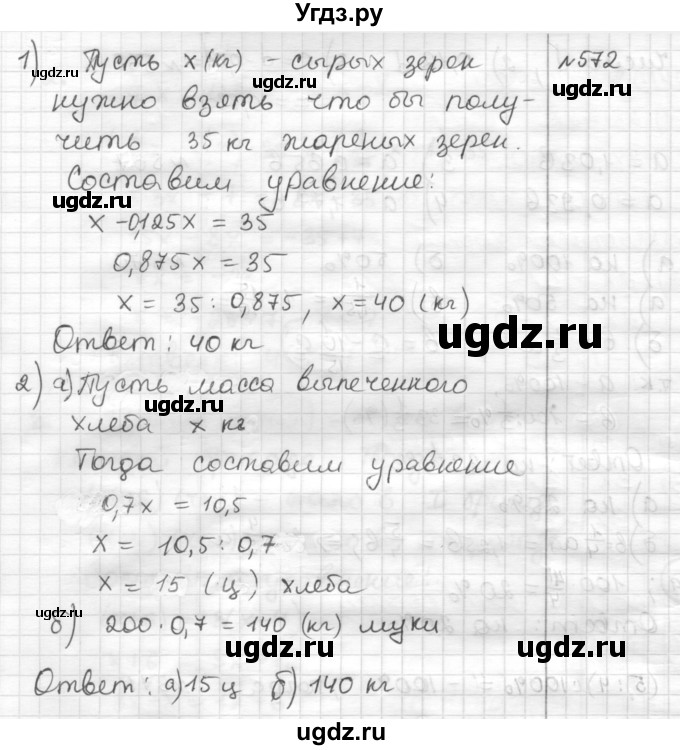 Угдз.ру
1) Пусть x (кг) - сырых зерен №572
нужно взять что бы полу-
чить 35 кг жареных зерен.
Составим уравнение:
x - 0,125x = 35
0,875x = 35
x = 35 : 0,875, x = 40 (кг)
Ответ: 40 кг
2) а) Пусть масса выпеченного
хлеба x кг
Тогда составим уравнение
0,7x = 10,5
x = 10,5 : 0,7
x = 15 (ц) хлеба
б) 200 · 0,7 = 140 (кг) муки
Ответ: а) 15 ц б) 140 кг
ugdz.ru
ugdz.ru
ugdz.ru
ugdz.ru
ugdz.ru
ugdz.ru
ugdz.ru
ugdz.ru
ugdz.ru
ugdz.ru
ugdz.ru